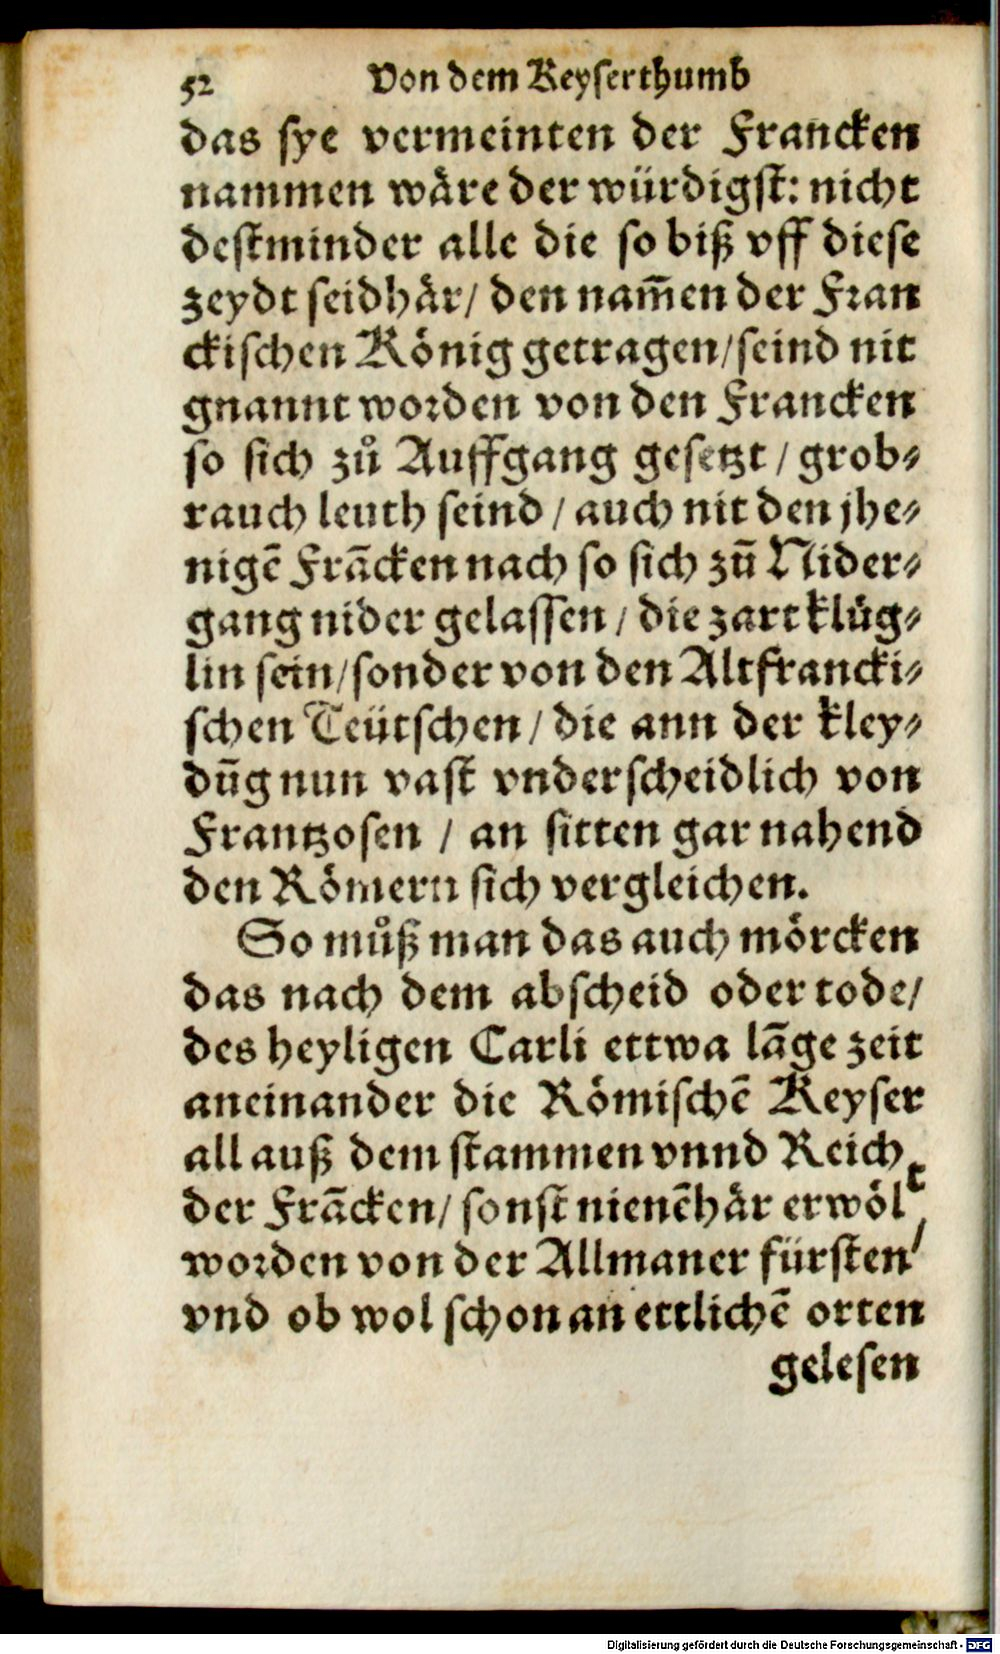 52 Von dem Keyserthumb
das sye vermeinten der Francken
nammen wäre der würdigst: nicht
destminder alle die so biß vff diese
zeydt seidhär/ den nam̄en der Fran
ckischen König getragen/seind nit
gnannt worden von den Francken
so sich zů Auffgang gesetzt / grob⸗
rauch leuth seind / auch nit den jhe⸗
nigē Frācken nach so sich zū Nider⸗
gang nider gelassen / die zart klüg⸗
lin sein/sonder von den Altfrancki⸗
schen Teütschen / die ann der kley⸗
dūg nun vast vnderscheidlich von
Frantzosen / an sitten gar nahend
den Römern sich vergleichen.
So můß man das auch mörcken
das nach dem abscheid oder tode/
des heyligen Carli ettwa lāge zeit
aneinander die Römischē Keyser
all auß dem stammen vnnd Reich
der Frācken/ sonst nienēhär erwölt
worden von der Allmaner fürsten/
vnd ob wol schon an ettlichē orten
gelesen
Digitalisierung gefördert durch die Deutsche Forschungsgemeinschaft - DFG